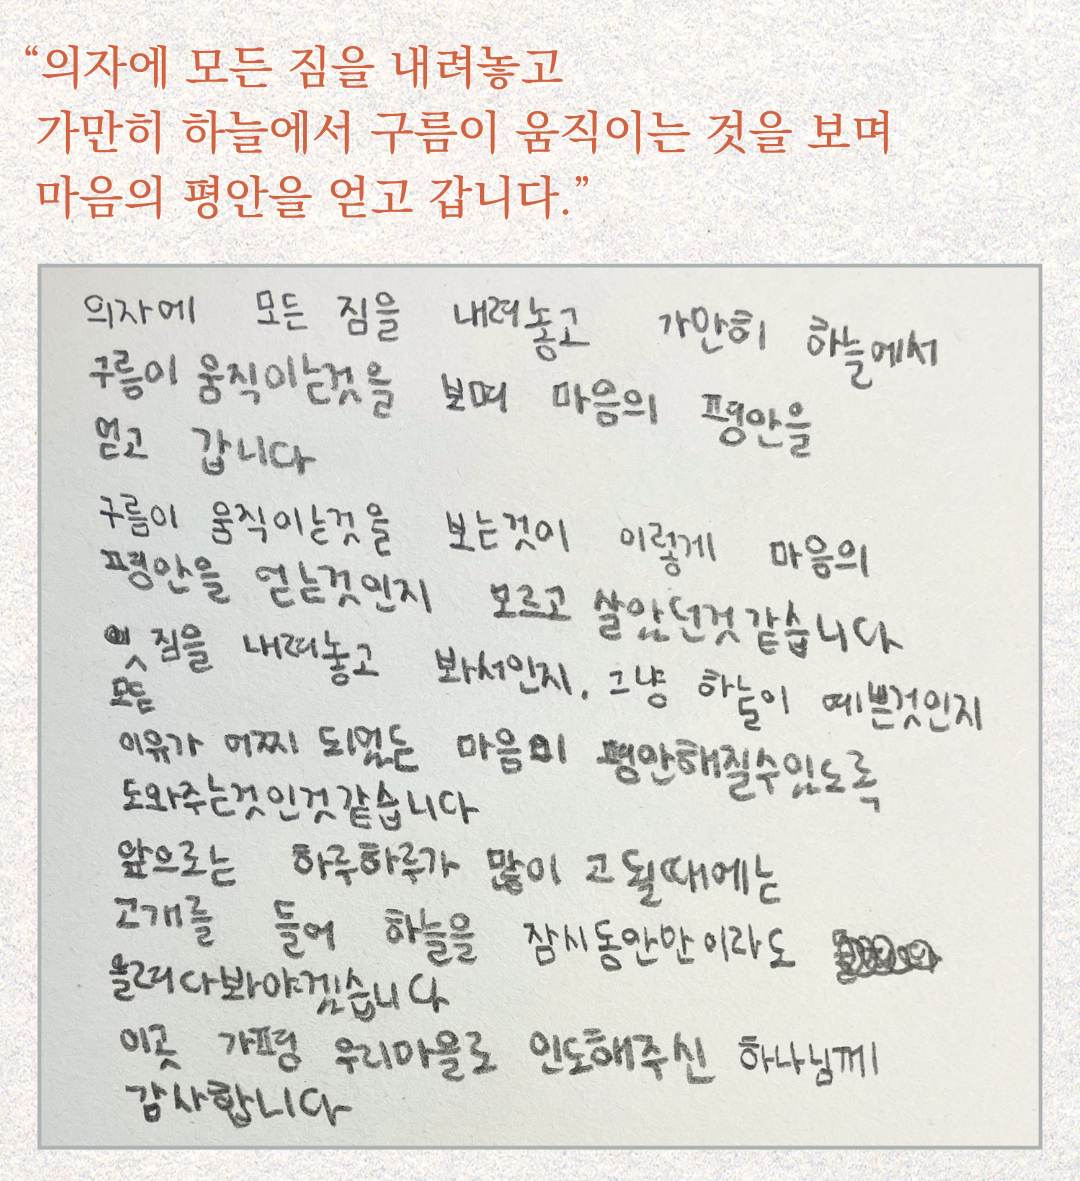 “의자에 모든 짐을 내려놓고
가만히 하늘에서 구름이 움직이는 것을 보며
마음의 평안을 얻고 갑니다.”
의자에 모든 짐을 내려놓고 가만히 하늘에서
구름이 움직이는것을 보며 마음의 평안을
얻고 갑니다
구름이 움직이는것을 보는것이 이렇게 마음의
평안을 얻는것인지 모르고 살았던것같습니다
짐을 내려놓고 봐서인지, 그냥 하늘이 예쁜것인지
모든
이유가 어찌 되었든 마음이 평안해질수있도록
도와주는것인것같습니다
앞으로는 하루하루가 많이 고될때에는
고개를 들어 하늘을 잠시동안만이라도
올려다봐야겠습니다
이곳 가평 우리마을로 인도해주신 하나님께
감사합니다